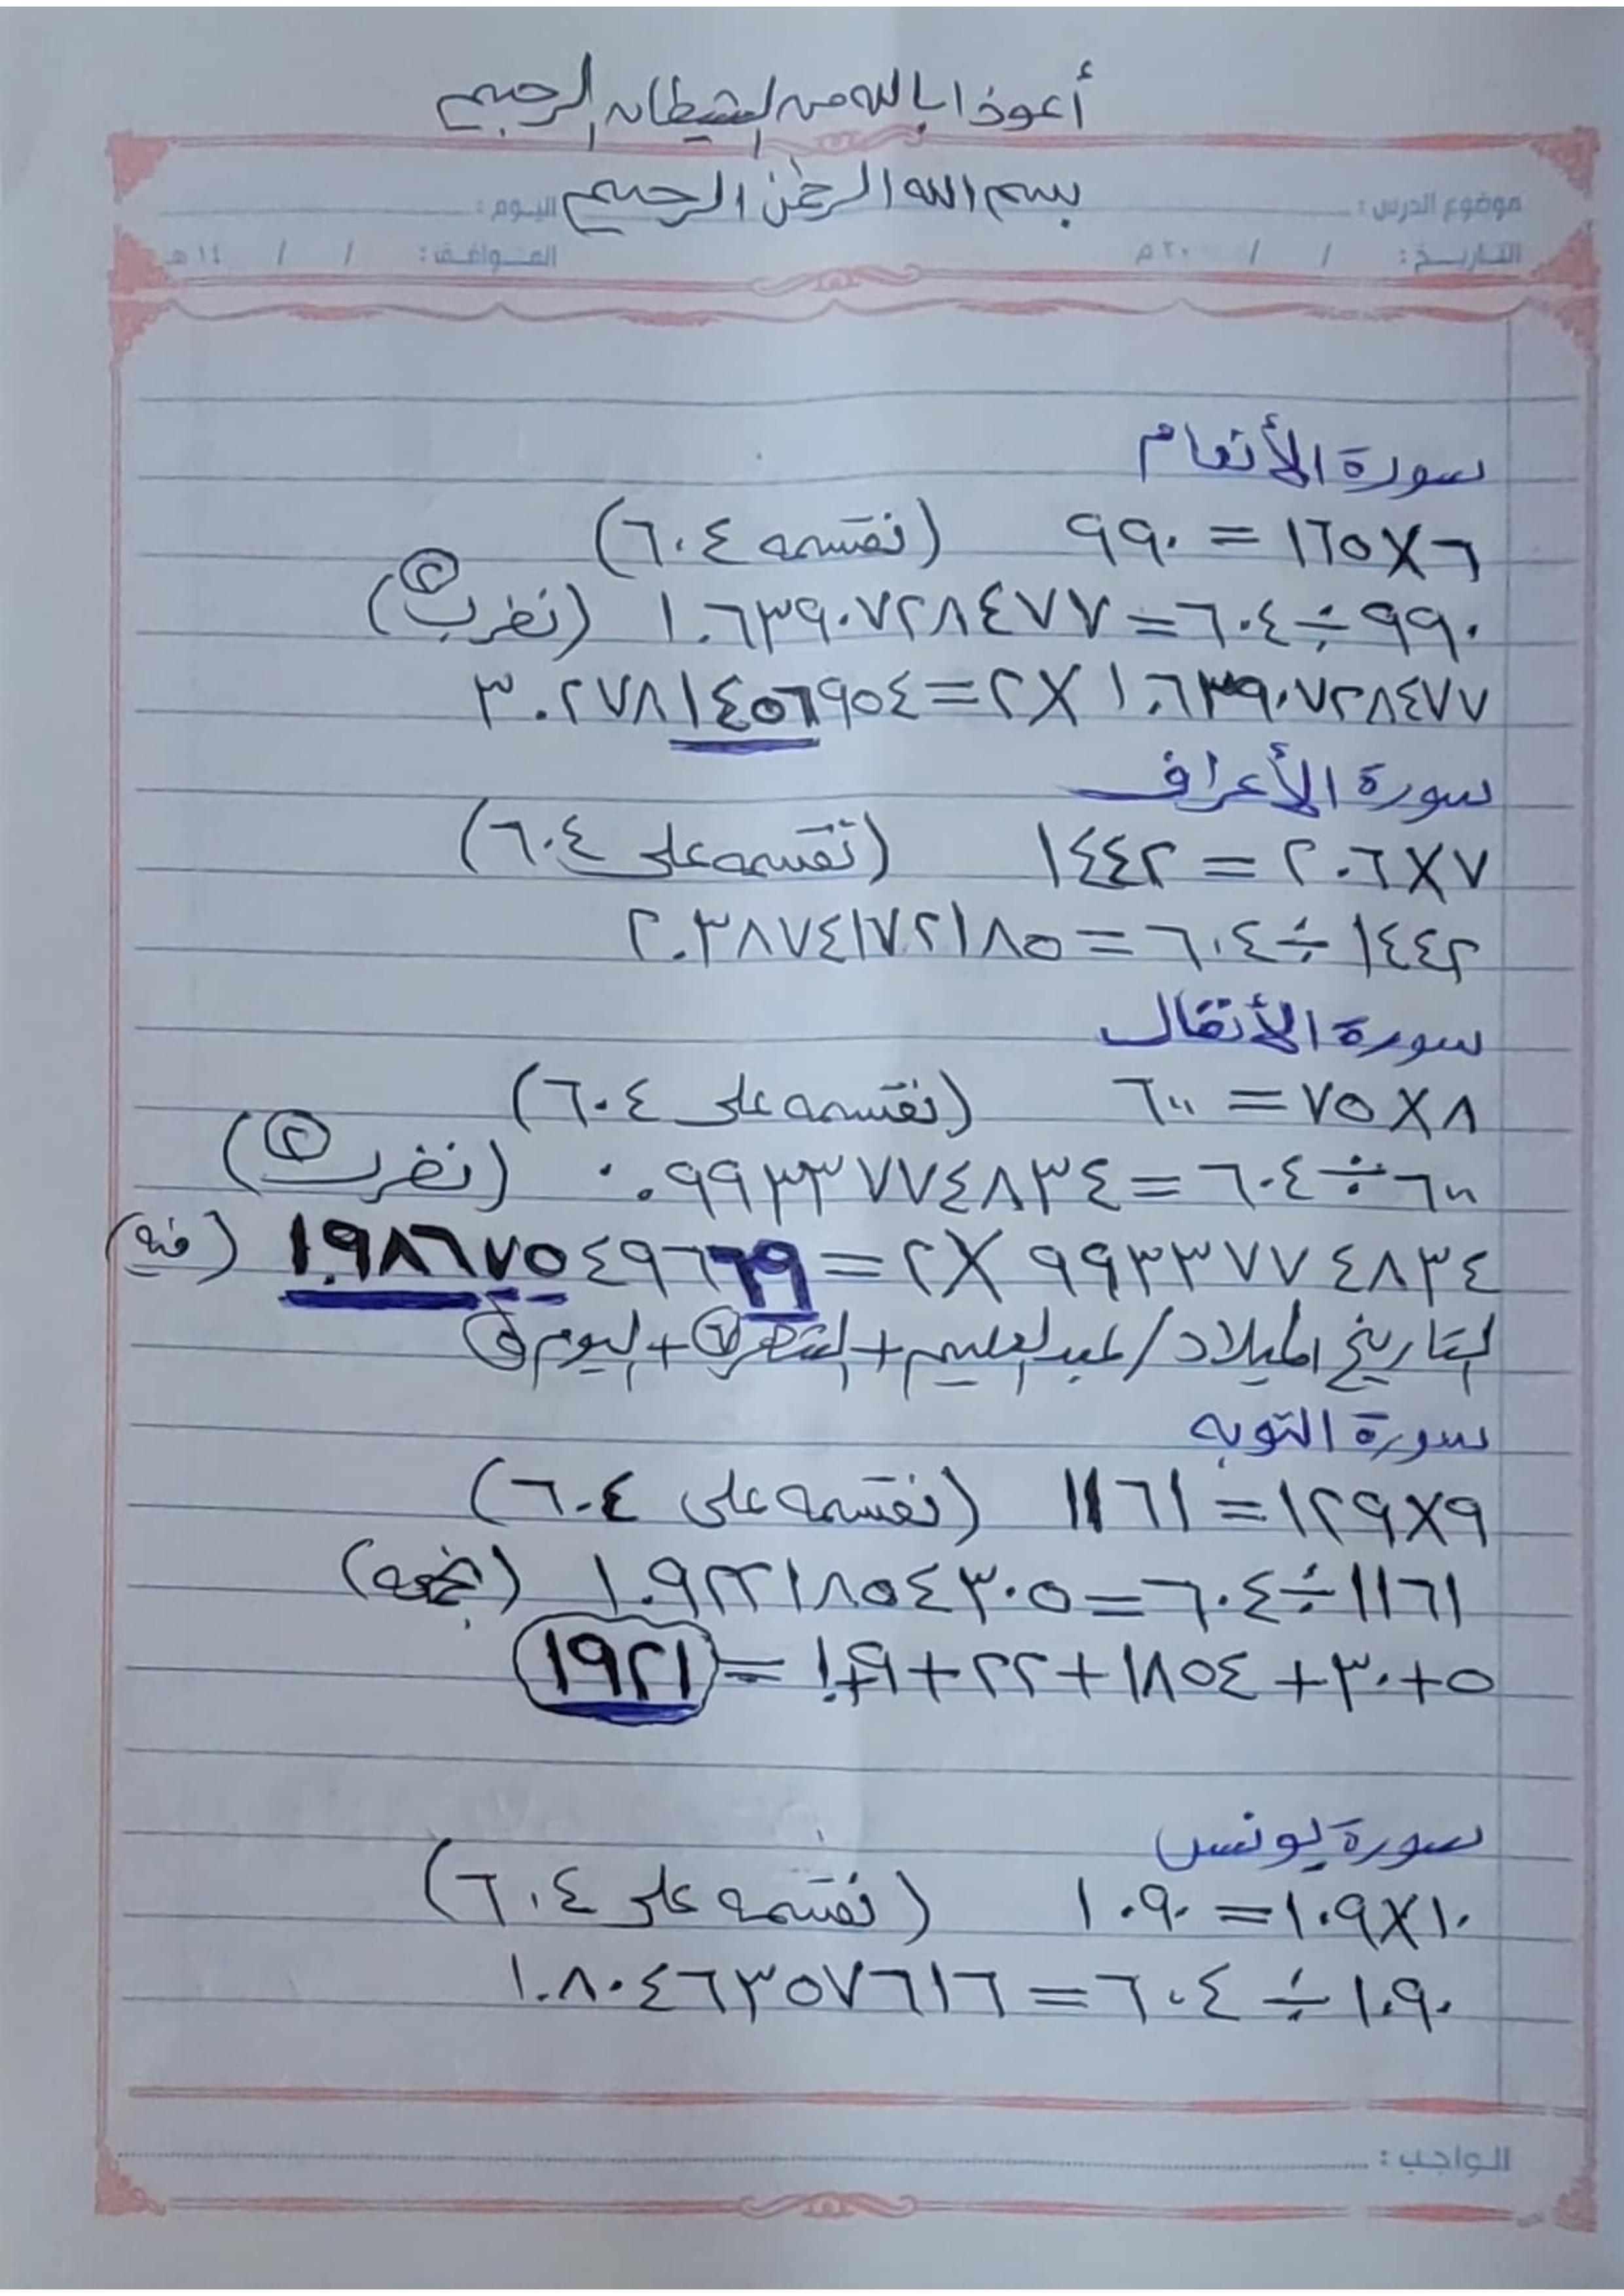 أعوذ بالله من الشيطان الرجيم
بسم الله الرحمن الرحيم
موضوع الدرس : اليوم :
التاريخ : / / ٢٠ م الموافق : / / ١٤ هـ
سورة الأنعام
٦ X ١٦٥ = ٩٩٠ (نقسمه ٦٠٤)
٩٩٠ ÷ ٦٠٤ = ١.٦٣٩٠٧٢٨٤٧٧ (نضرب ٢)
١.٦٣٩٠٧٢٨٤٧٧ X ٢ = ٣.٢٧٨١٤٥٦٩٥٤
سورة الأعراف
٧ X ٢٠٦ = ١٤٤٢ (نقسمه على ٦٠٤)
١٤٤٢ ÷ ٦٠٤ = ٢.٣٨٧٤١٧٢١٨٥
سورة الأنفال
٨ X ٧٥ = ٦٠٠ (نقسمه على ٦٠٤)
٦٠٠ ÷ ٦٠٤ = ٠.٩٩٣٣٧٧٤٨٣٤ (نضرب ٢)
٩٩٣٣٧٧٤٨٣٤ X ٢ = ١.٩٨٦٧٥٤٩٦٦٩ (منه)
التاريخ الميلاد / عبد العليم + الشهر ٧ + اليوم ٥
سورة التوبه
٩ X ١٢٩ = ١١٦١ (نقسمه على ٦٠٤)
١١٦١ ÷ ٦٠٤ = ١.٩٢٢١٨٥٤٣٠٥ (نجمعه)
٥ + ٣٠ + ١٨٥٤ + ٢٢ + ٩ + ١ = ١٩٢١
سورة يونس
١٠ X ١٠٩ = ١٠٩٠ (نقسمه على ٦٠٤)
١٠٩٠ ÷ ٦٠٤ = ١.٨٠٤٦٣٥٧٦١٦
الواجب :